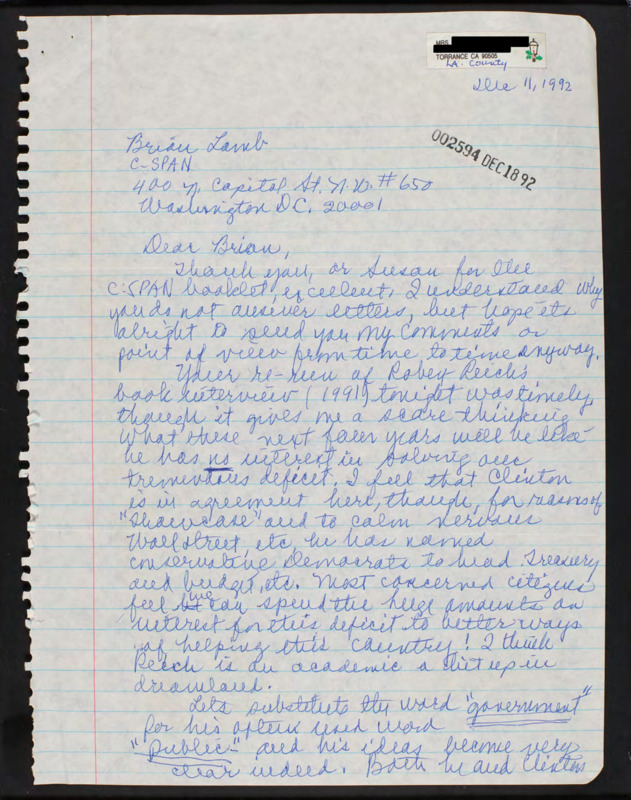 MRS.
TORRANCE CA 90505
LA. County
Dec 11, 1992
002594 DEC 18 92
Brian Lamb
C-SPAN
400 N. Capital St. N.W. #650
Washington D.C. 20001
Dear Brian,
Thank you, or Susan for the
C-SPAN booklet, excellent, I understand why
you do not answer letters, but hope its
alright to send you my comments or
point of view from time to time anyway.
Your re-run of Robey Reich's
book interview (1991) tonight was timely,
though it gives me a scare thinking
what these next four years will be like -
he has no interest in solving our
tremendous deficit. I feel that Clinton
is in agreement here, though, for reasons of
"showcase" and to calm nervous
Wall Street, etc he has named
conservating Democrats to head Treasury
and budget, etc. Most concerned citizens
feel we can spend the huge amounts on
interest for this deficit to better ways
of helping this country! I think
Reich is an academic a bit up in
dreamland.
Lets substitute the word "government"
for his often used word
"public" and his ideas become very
clear indeed. Both he and Clinton